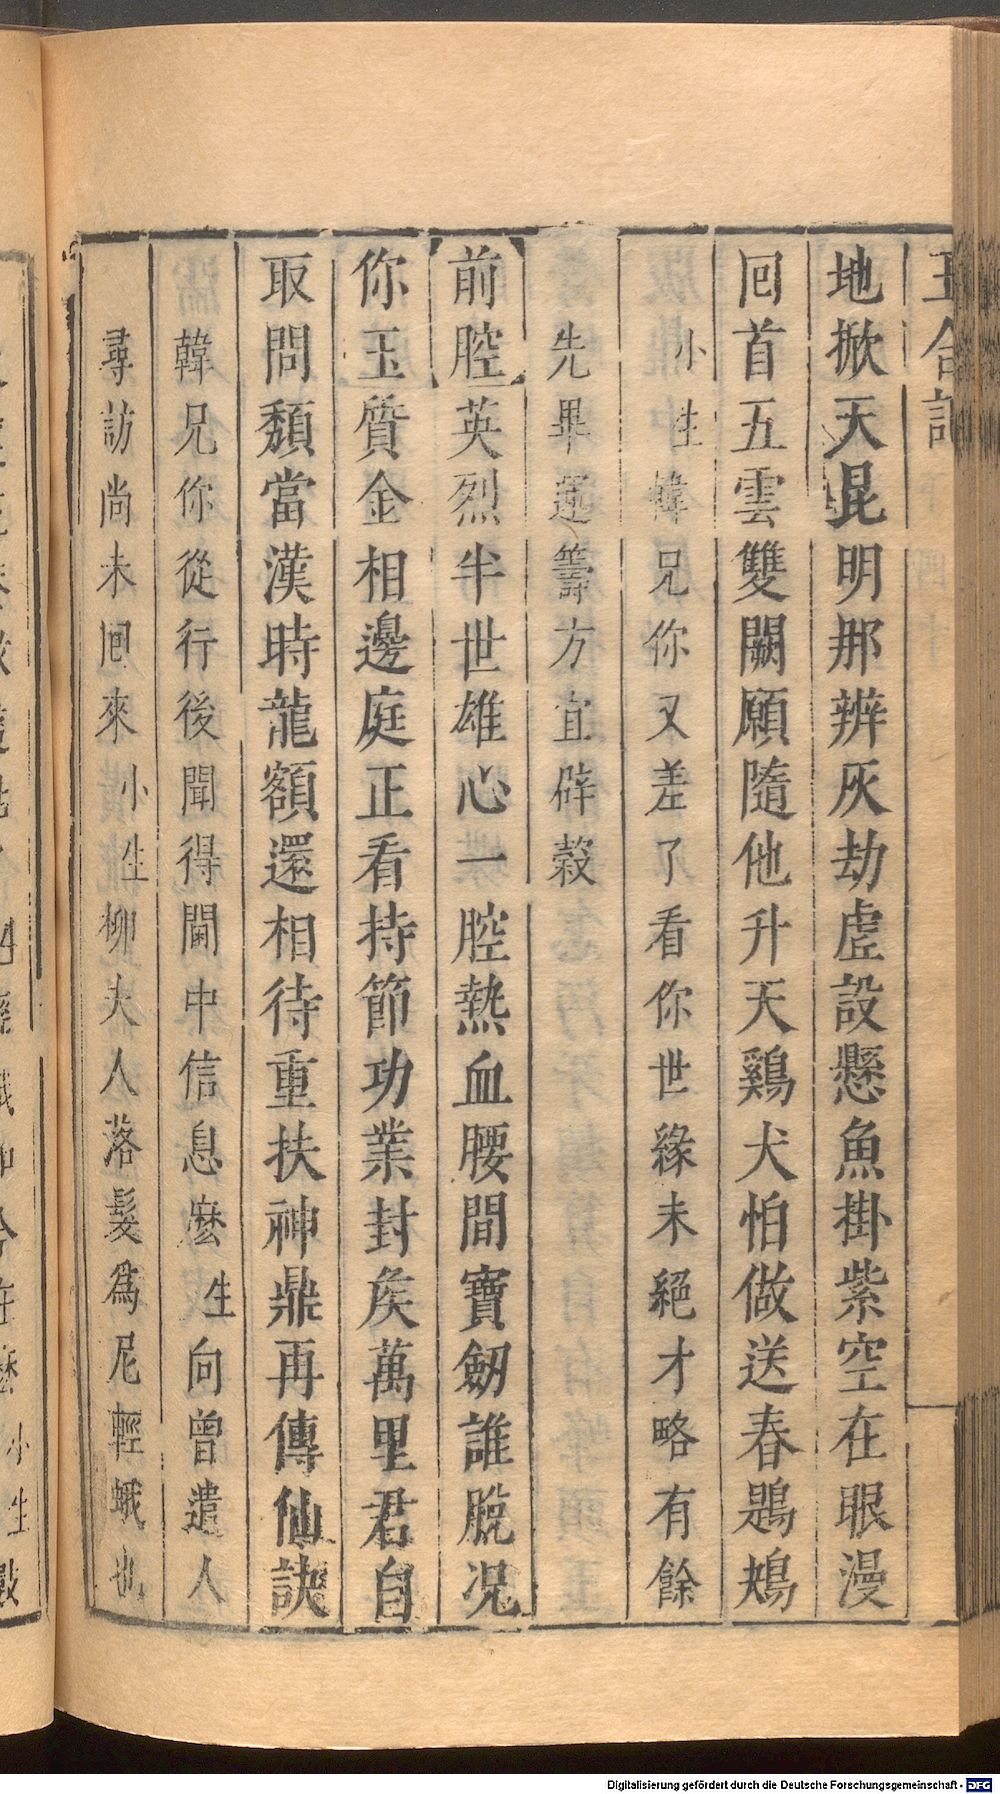 玉合記
地掀天昆明那辨灰劫虛設懸魚掛紫空在眼漫
回首五雲雙闕願隨他升天鷄犬怕做送春鶗鴂
小生韓兄你又差了看你世緣未絕才略有餘
先畢運籌方宜辟穀
前腔英烈半世雄心一腔熱血腰間寶劒誰脫况
你玉質金相邊庭正看持節功業封矦萬里君自
取問頽當漢時龍額還相待重扶神鼎再傳仙訣
韓兄你從行後聞得闌中信息麽生向曾遣人
尋訪尚未囘來小生柳夫人落髮爲尼輕蛾也
Digitalisierung gefördert durch die Deutsche Forschungsgemeinschaft - DFG